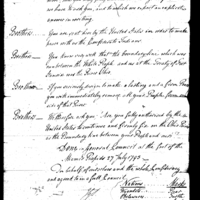 in writing
Brothers You are sent here by the United States in order to make
peace with us the Confederate Indians
Brothers You know very well that the boundary line, which was
run between the White People and us at the Treaty of Fort
Stanwix was the River Ohio
Brothers If you seriously design to make a lasting and a firm Peace
you will immediately remove all your People from our
side of that River
Brothers We therefore ask you, Are you fully authorized by the
United States to continue and firmly fix on the Ohio River
as the Boundary line between your People and ours
Done in General Council at the foot of the
Miamis Rapids 27 July 1793
In behalf of ourselves and the whole Confederacy
and agreed to in a full Council
Nations
Wyandots
Delawares